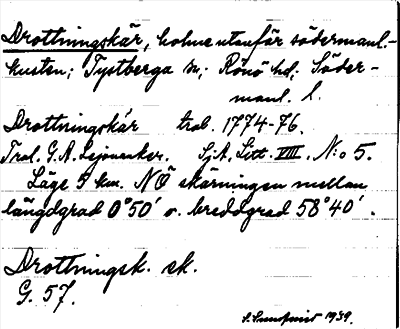 Drottningskär, holme utanför södermanl.-
kusten; Tystberga sn; Rönö hd; Söder-
manl. l.
Drottningskär trol. 1774-76.
Trol. G.A. Lejonanker. SjA, Litt. VIII, N:o 5.
Läge 5 km. NÖ skärningen mellan
längdgrad 0°50' o. breddgrad 58°40'.
Drottningsk. sk.
G. 57.
S. Sundqvist 1939.